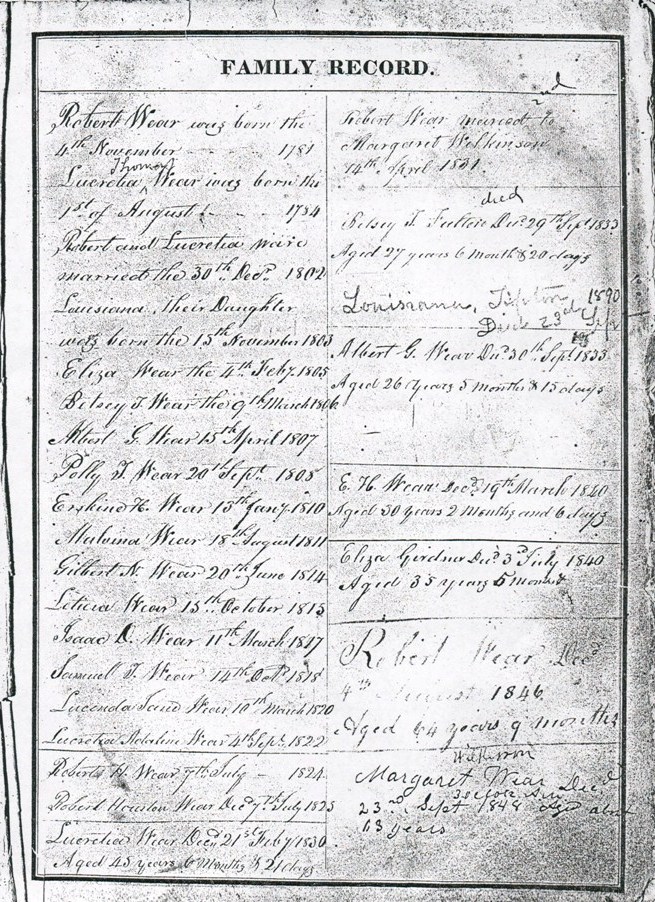 FAMILY RECORD.
Robert Wear was born the
4th November - - - 1781
Thomas
Lucretia ^ Wear was born the
1st of August - - 1784
Robert and Lucretia were
married the 30th Decr. 1802
Louisiana, their Daughter
was born the 15th November 1803
Eliza Wear the 4th Feby. 1805
Betsey T. Wear the 9th March 1806
Albert G. Wear 15th April 1807
Polly T. Wear 20th Sept. 1808
Erskine H. Wear 13th Jany. 1810
Malvina Wear 18th August 1811
Gilbert N. Wear 20th June 1814
Leticia Wear 15th October 1815
Isaac D. Wear 11th March 1817
Samuel T. Wear 14th Oct. 1818
Lucenda Jane Wear 10th March 1820
Lucretia Adaline Wear 4th Sept. 1822
Robert H. Wear 7th July - 1824
Robert Houston Wear Decd 7th July 1825
Lucretia Wear Decd 21st Feby 1830
Aged 45 years 6 Months & 21 days
2nd
Robert Wear married to
Margaret Wilkinson
14th April 1831.
died
Betsey T. Decd 29th Sept 1833
Aged 27 years 6 month & 20 days
Louisiana, Tipton 1890
Died 23rd
Albert G. Wear Decd 30th Sept. 1833
Aged 26 years 5 months & 15 days
E. H. Wear Decd 19th March 1840
Aged 30 years 2 months and 6 days
Eliza Girdner Decd 3rd July 1840
Aged 35 years 5 months
Robert Wear Decd
4th August 1846
Aged 64 years 9 months
Wilkinson
Margaret Wear Died
23rd, Sept 1848 aged about
63 years